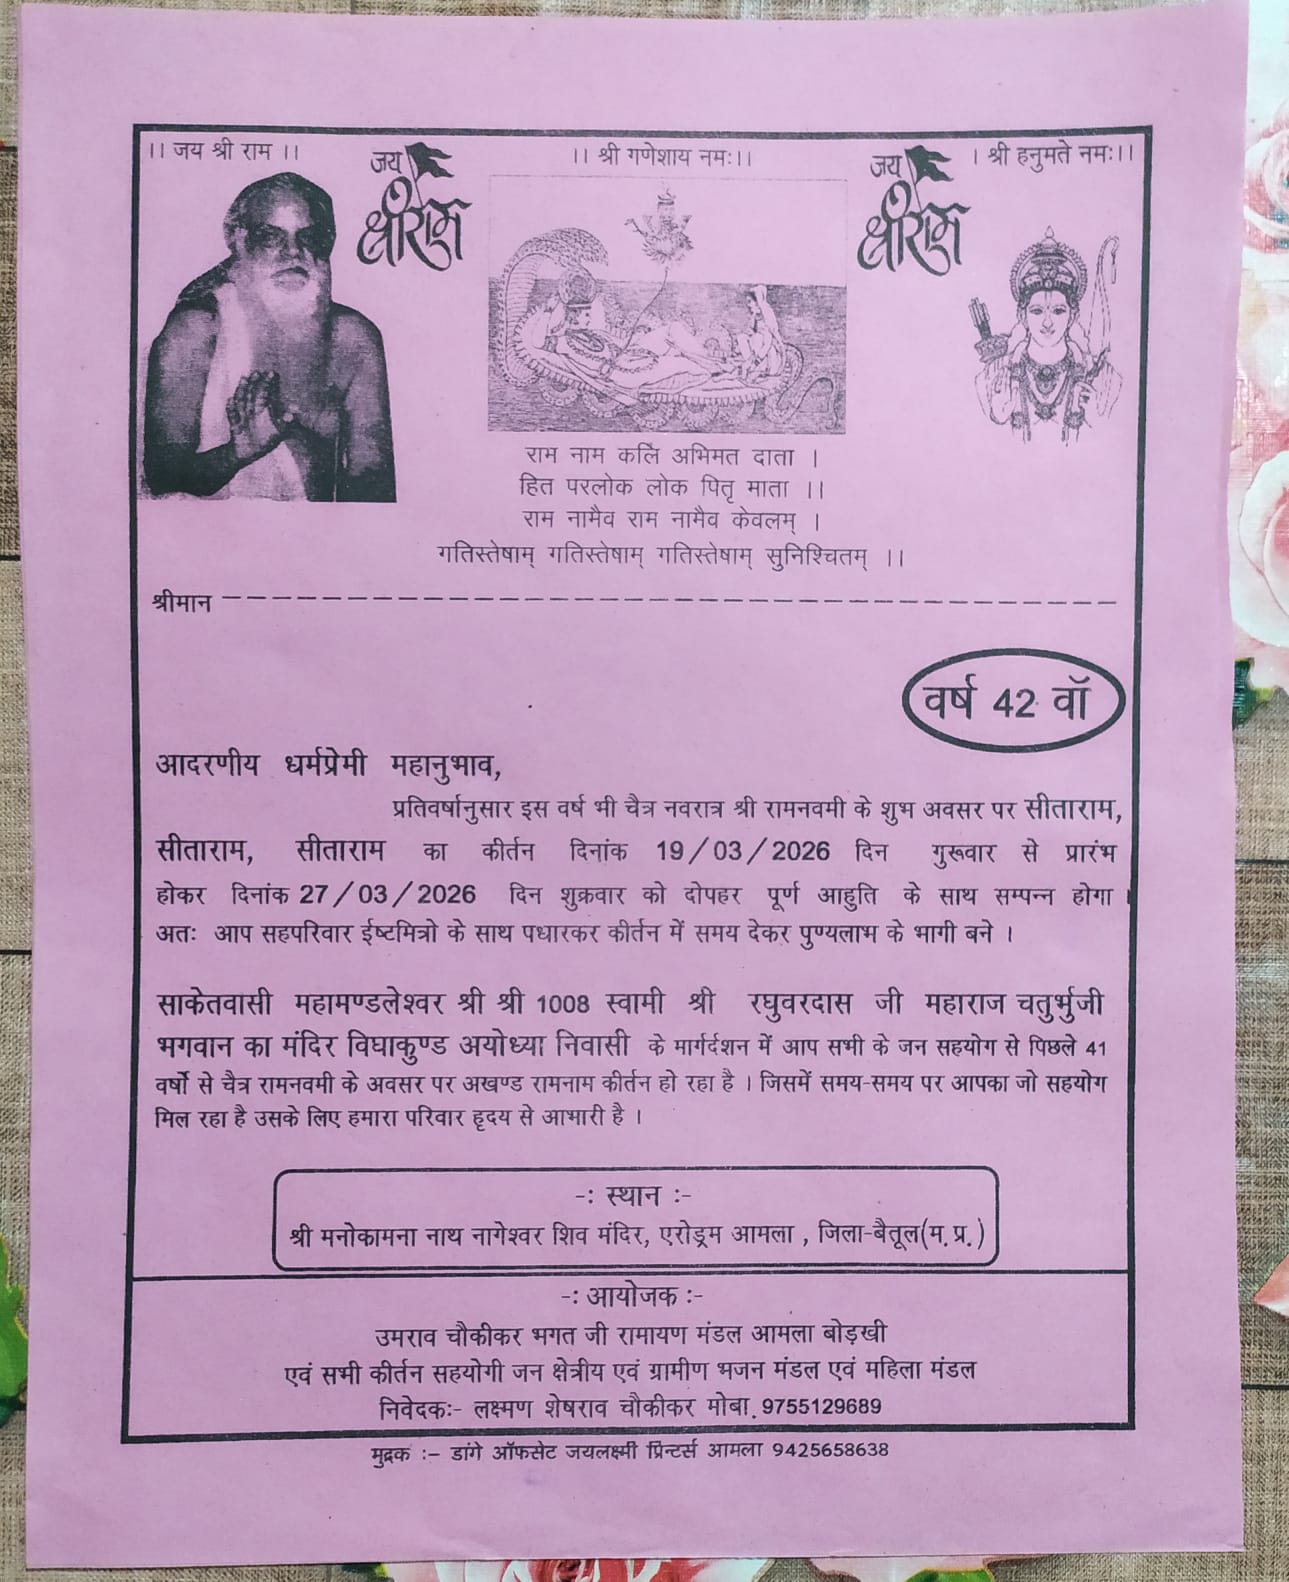 ।। जय श्री राम ।।
जय श्रीराम
।। श्री गणेशाय नमः।।
जय श्रीराम
। श्री हनुमते नमः।।
राम नाम कलि अभिमत दाता ।
हित परलोक लोक पितृ माता ।।
राम नामैव राम नामैव केवलम् ।
गतिस्तेषाम् गतिस्तेषाम् गतिस्तेषाम् सुनिश्चितम् ।।
श्रीमान
वर्ष 42 वॉ
आदरणीय धर्मप्रेमी महानुभाव,
प्रतिवर्षानुसार इस वर्ष भी चैत्र नवरात्र श्री रामनवमी के शुभ अवसर पर सीताराम,
सीताराम, सीताराम का कीर्तन दिनांक 19/03/2026 दिन गुरूवार से प्रारंभ
होकर दिनांक 27/03/2026 दिन शुक्रवार को दोपहर पूर्ण आहुति के साथ सम्पन्न होगा ।
अतः आप सहपरिवार ईष्टमित्रो के साथ पधारकर कीर्तन में समय देकर पुण्यलाभ के भागी बने ।
साकेतवासी महामण्डलेश्वर श्री श्री 1008 स्वामी श्री रघुवरदास जी महाराज चतुर्भुजी
भगवान का मंदिर विघाकुण्ड अयोध्या निवासी के मार्गर्दशन में आप सभी के जन सहयोग से पिछले 41
वर्षो से चैत्र रामनवमी के अवसर पर अखण्ड रामनाम कीर्तन हो रहा है । जिसमें समय-समय पर आपका जो सहयोग
मिल रहा है उसके लिए हमारा परिवार हृदय से आभारी है ।
-: स्थान :-
श्री मनोकामना नाथ नागेश्वर शिव मंदिर, एरोड्रम आमला , जिला-बैतूल(म.प्र.)
-: आयोजक :-
उमराव चौकीकर भगत जी रामायण मंडल आमला बोड़खी
एवं सभी कीर्तन सहयोगी जन क्षेत्रीय एवं ग्रामीण भजन मंडल एवं महिला मंडल
निवेदकः- लक्ष्मण शेषराव चौकीकर मोबा. 9755129689
मुद्रक :- डांगे ऑफसेट जयलक्ष्मी प्रिन्टर्स आमला 9425658638